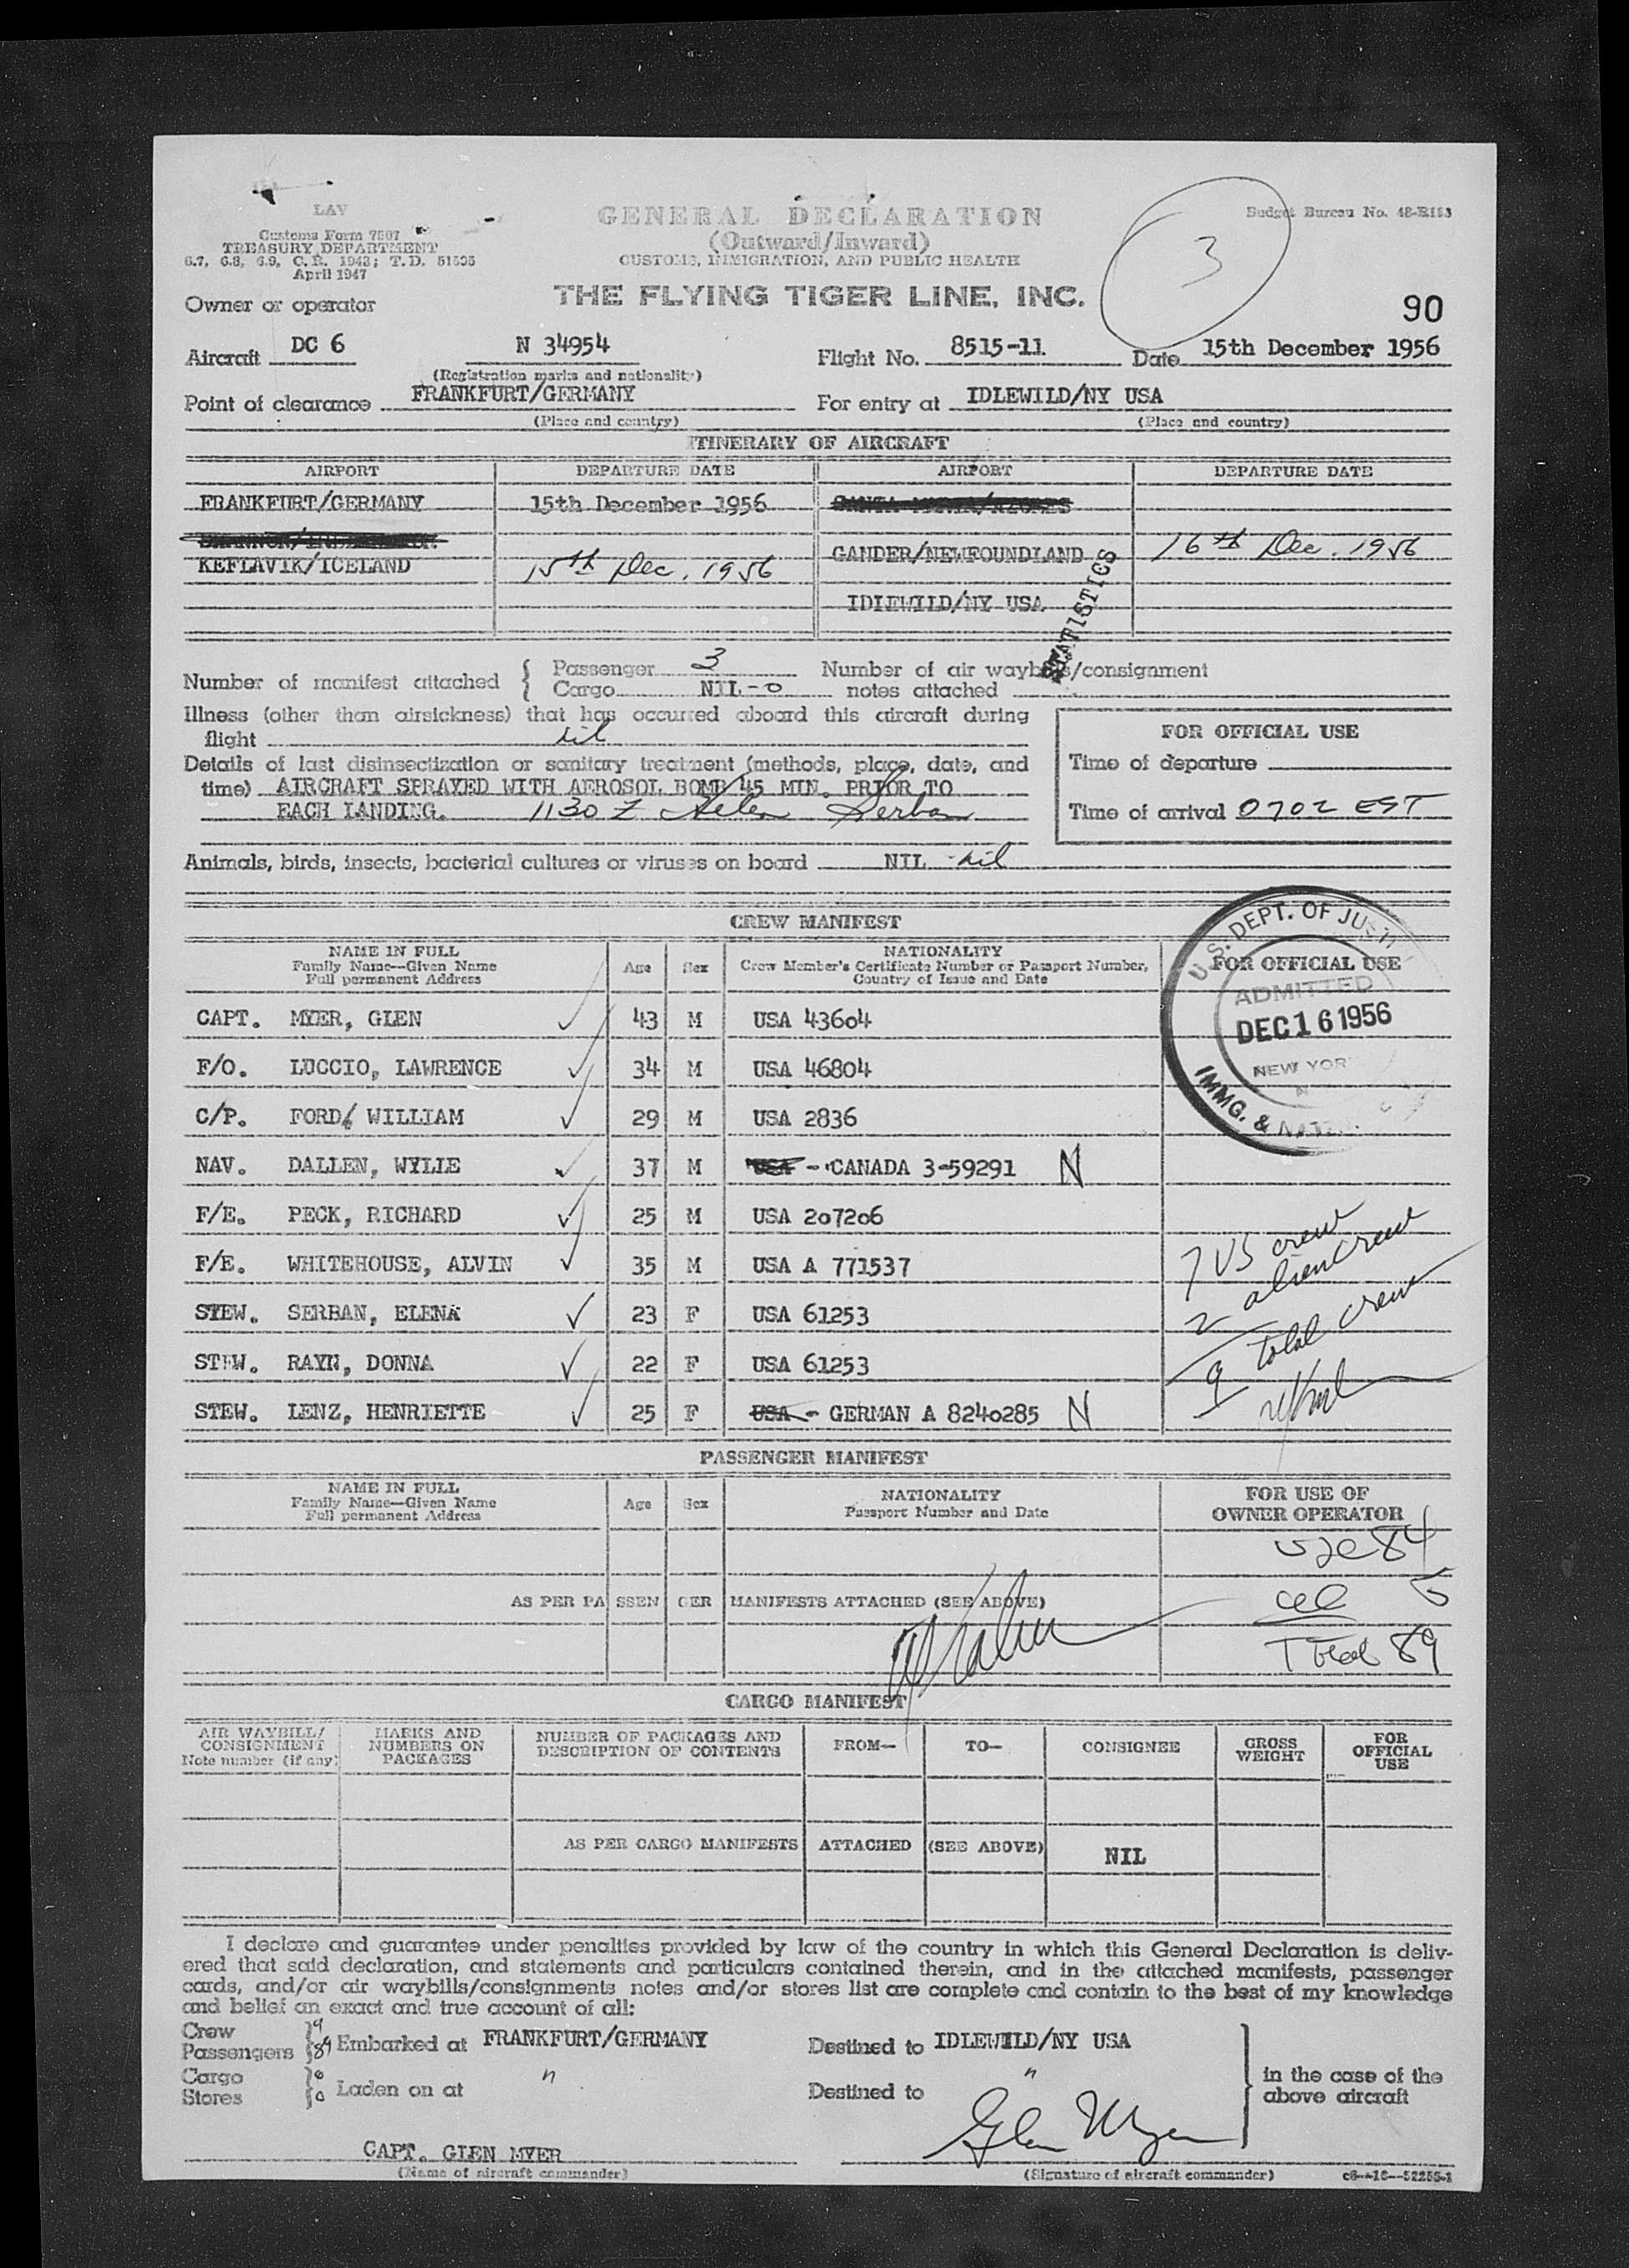 LAV
Customs Form 7507
TREASURY DEPARTMENT
6.7, 6.8, 6.9, C.R. 1943; T.D. 51505
April 1947
GENERAL DECLARATION
(Outward/Inward)
CUSTOMS, IMMIGRATION, AND PUBLIC HEALTH
Budget Bureau No. 48-R153
3
Owner or operator
THE FLYING TIGER LINE, INC.
90
Aircraft DC 6 N 34954 Flight No. 8515-11 Date 15th December 1956
(Registration marks and nationality)
Point of clearance FRANKFURT/GERMANY For entry at IDLEWILD/NY USA
(Place and country) (Place and country)
ITINERARY OF AIRCRAFT
AIRPORT DEPARTURE DATE AIRPORT DEPARTURE DATE
FRANKFURT/GERMANY 15th December 1956
KEFLAVIK/ICELAND 15th Dec. 1956 GANDER/NEWFOUNDLAND 16th Dec. 1956
IDLEWILD/NY USA
STATISTICS
Number of manifest attached { Passenger 3 Number of air waybills/consignment
Cargo NIL-0 notes attached
Illness (other than airsickness) that has occurred aboard this aircraft during
flight nil
Details of last disinsectization or sanitary treatment (methods, place, date, and
time) AIRCRAFT SPRAYED WITH AEROSOL BOMB 45 MIN. PRIOR TO
EACH LANDING. 1130 Z Serban
FOR OFFICIAL USE
Time of departure
Time of arrival 0702 EST
Animals, birds, insects, bacterial cultures or viruses on board NIL nil
CREW MANIFEST
NAME IN FULL
Family Name—Given Name
Full permanent Address
Age Sex
NATIONALITY
Crew Member's Certificate Number or Passport Number,
Country of Issue and Date
FOR OFFICIAL USE
U.S. DEPT. OF JUSTI
ADMITTED
DEC 16 1956
NEW YOR
IMMG. & NAT
CAPT. MYER, GLEN 43 M USA 43604
F/O. LUCCIO, LAWRENCE 34 M USA 46804
C/P. FORD, WILLIAM 29 M USA 2836
NAV. DALLEN, WYLIE 37 M USA - CANADA 3-59291 N
F/E. PECK, RICHARD 25 M USA 207206
F/E. WHITEHOUSE, ALVIN 35 M USA A 771537
STEW. SERBAN, ELENA 23 F USA 61253
STEW. RAYN, DONNA 22 F USA 61253
STEW. LENZ, HENRIETTE 25 F USA - GERMAN A 8240285 N
7 US crew
2 alien crew
9 total crew
PASSENGER MANIFEST
NAME IN FULL
Family Name—Given Name
Full permanent Address
Age Sex
NATIONALITY
Passport Number and Date
FOR USE OF
OWNER OPERATOR
usc 84
AS PER PASSENGER MANIFESTS ATTACHED (SEE ABOVE)
5
Total 89
CARGO MANIFEST
AIR WAYBILL/
CONSIGNMENT
Note number (if any)
MARKS AND
NUMBERS ON
PACKAGES
NUMBER OF PACKAGES AND
DESCRIPTION OF CONTENTS
FROM— TO— CONSIGNEE
GROSS
WEIGHT
FOR
OFFICIAL
USE
AS PER CARGO MANIFESTS ATTACHED (SEE ABOVE) NIL
I declare and guarantee under penalties provided by law of the country in which this General Declaration is deliv-
ered that said declaration, and statements and particulars contained therein, and in the attached manifests, passenger
cards, and/or air waybills/consignments notes and/or stores list are complete and contain to the best of my knowledge
and belief an exact and true account of all:
Crew 9
Passengers 89 Embarked at FRANKFURT/GERMANY Destined to IDLEWILD/NY USA
Cargo 0
Stores 0 Laden on at " Destined to "
in the case of the
above aircraft
CAPT. GLEN MYER Glen Myer
(Name of aircraft commander) (Signature of aircraft commander) c8—16—52255-1